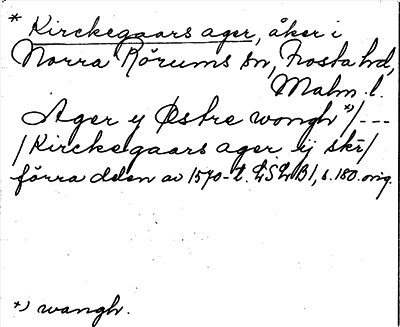 * Kirckegaars ager, åker i
Norra Rörums sn, Frosta hd,
Malm. l.
Ager y Østre wongh *)/---
/Kirckegaars ager ij skr/
förra delen av 1570-t. LSLB1, s. 180. orig.
*) wangh.